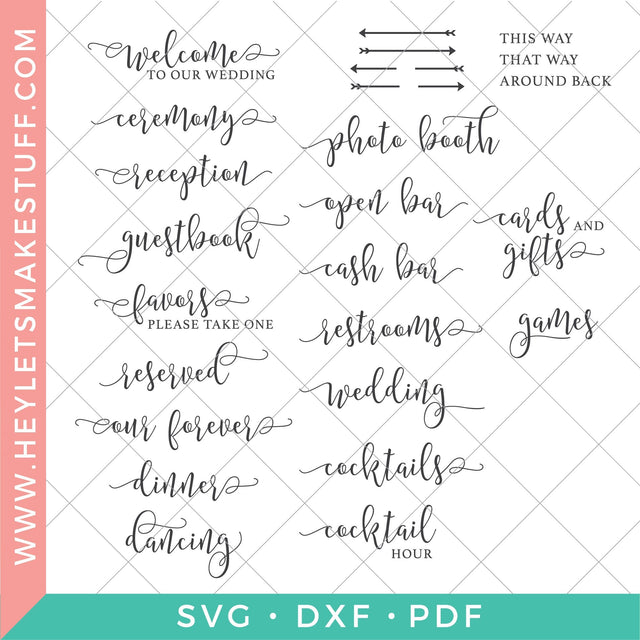 WWW.HEYLETSMAKESTUFF.COM
welcome
TO OUR WEDDING
ceremony
reception
guestbook
favors
PLEASE TAKE ONE
reserved
our forever
dinner
dancing
photo booth
open bar
cash bar
restrooms
wedding
cocktails
cocktail
HOUR
THIS WAY
THAT WAY
AROUND BACK
cards AND
gifts
games
SVG • DXF • PDF